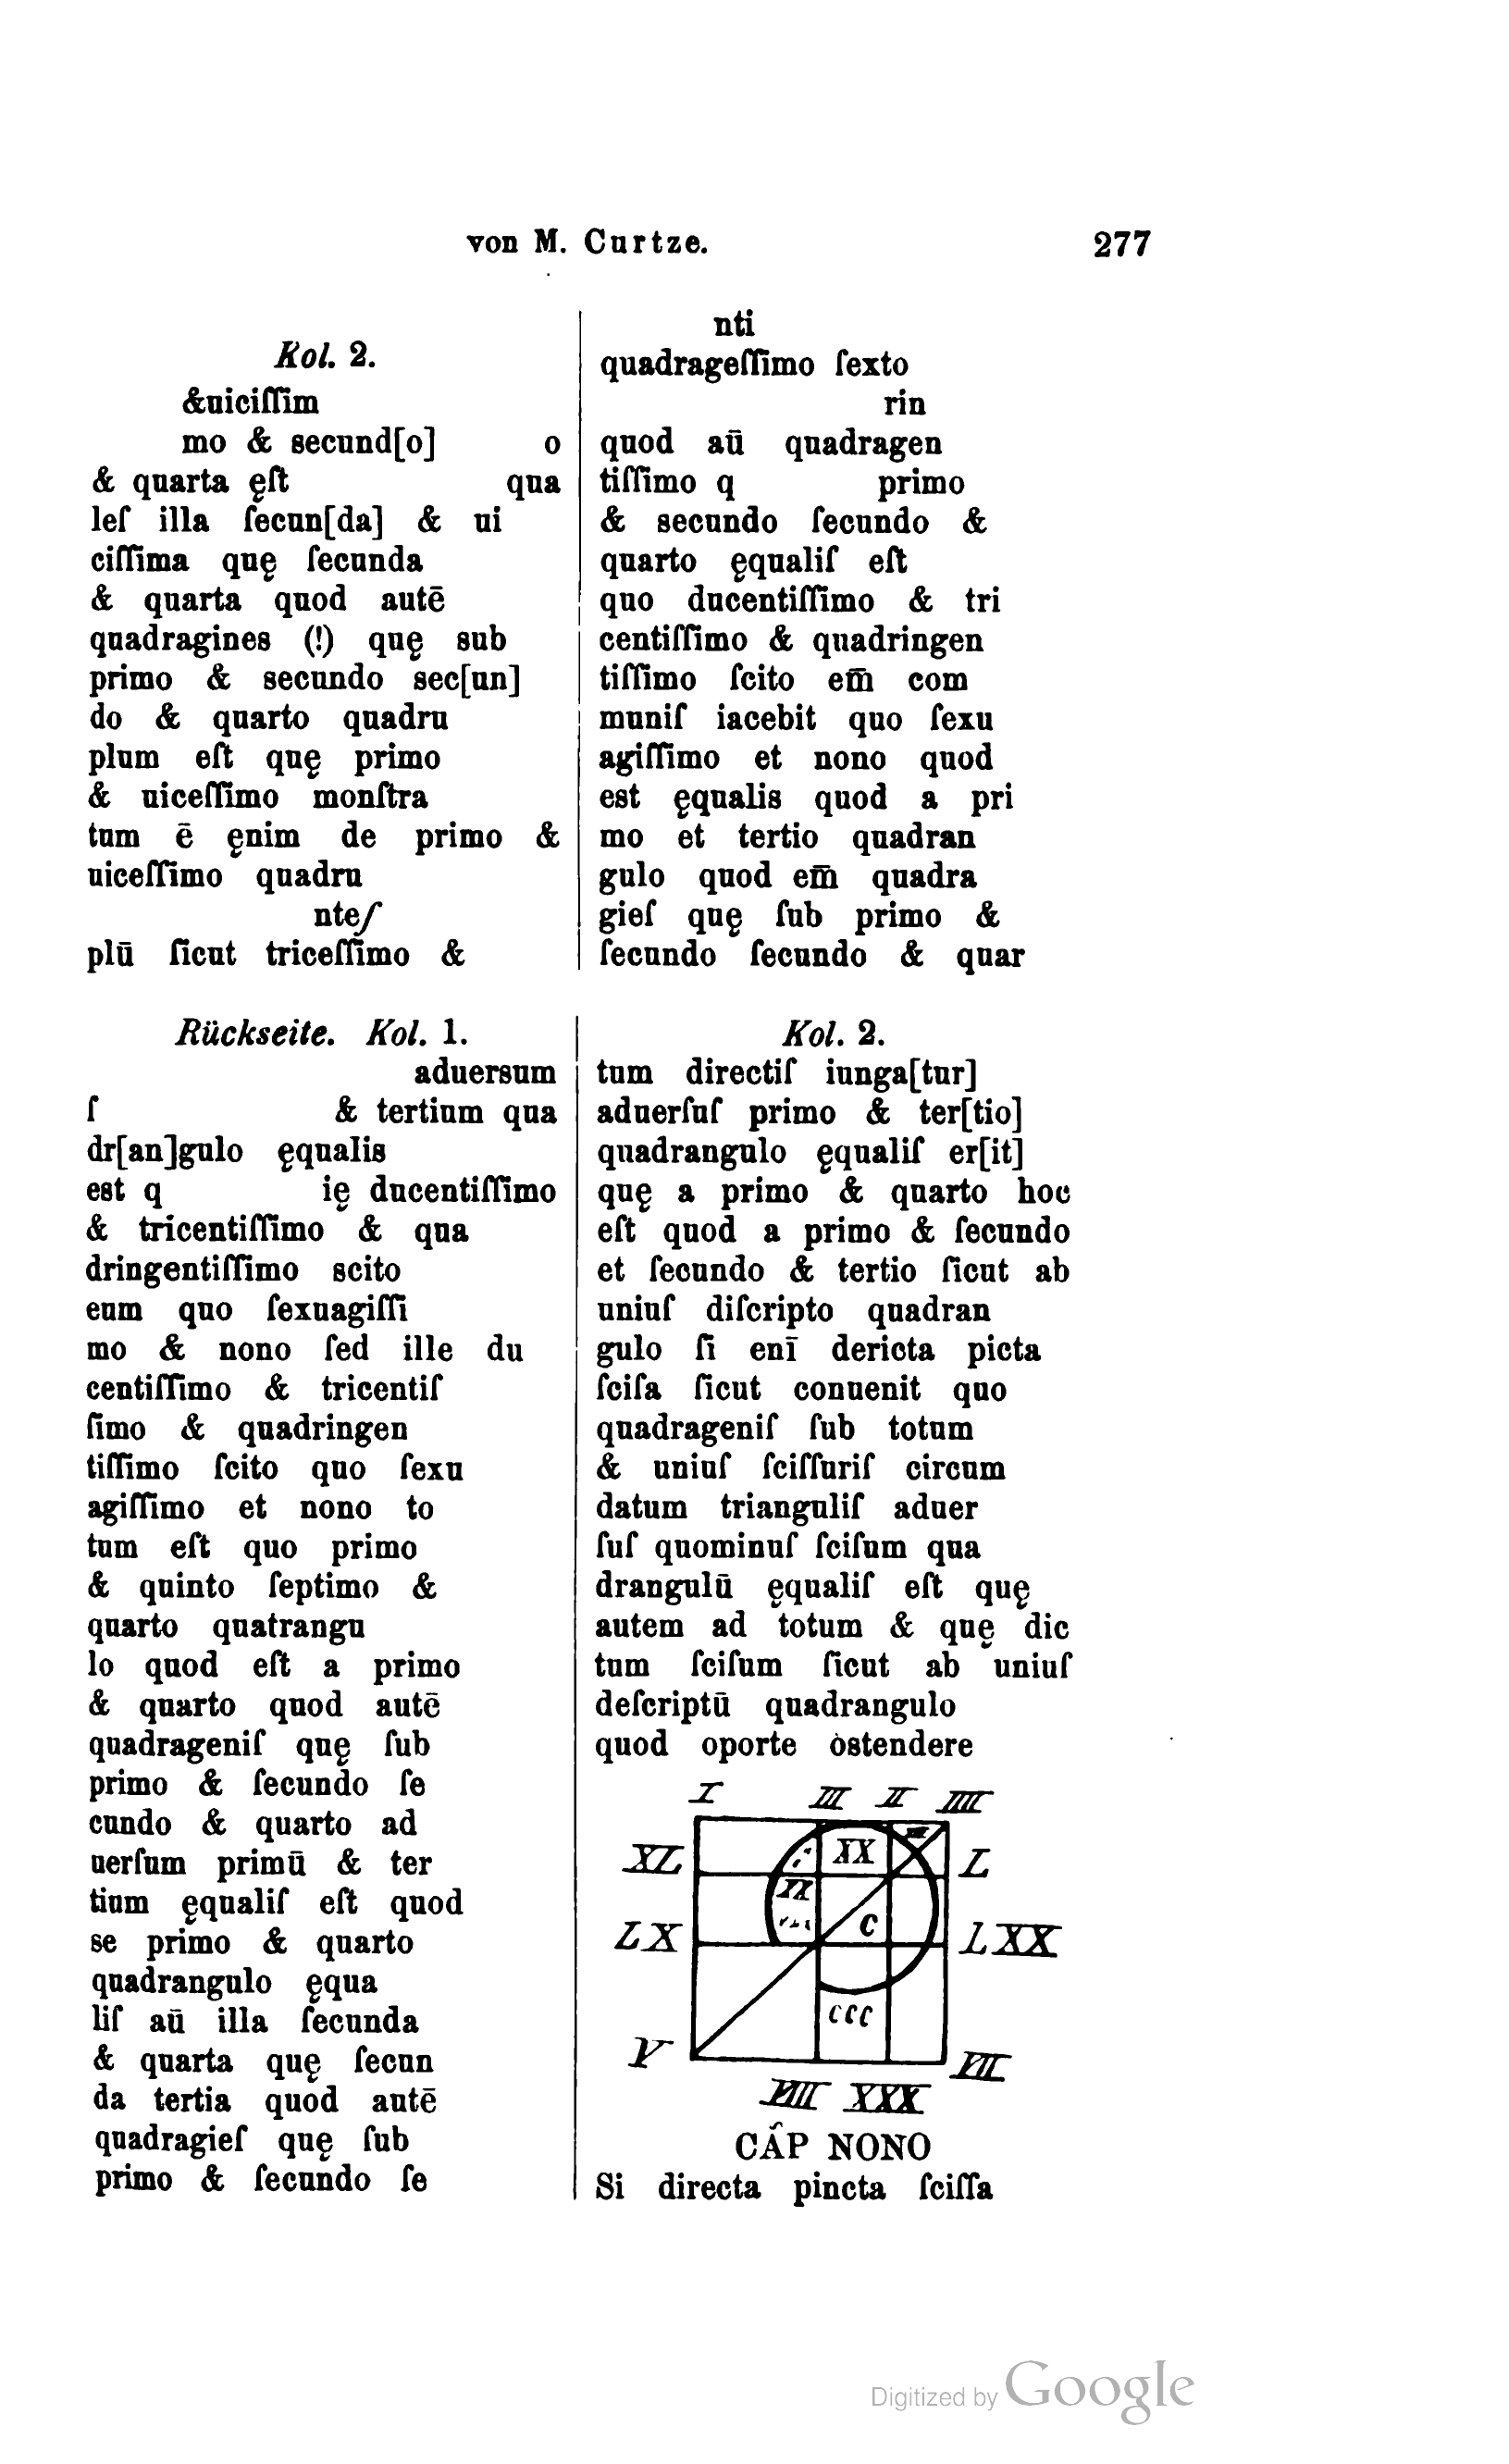 von M. Curtze.
277
Kol. 2.
&uiciſſim
mo & secund[o] o
& quarta ęſt qua
leſ illa ſecun[da] & ui
ciſſima quę ſecunda
& quarta quod autē
quadragines (!) quę sub
primo & secundo sec[un]
do & quarto quadru
plum eſt quę primo
& uiceſſimo monſtra
tum ē ęnim de primo &
uiceſſimo quadru
nteſ
plū ſicut triceſſimo &
nti
quadrageſſimo ſexto
rin
quod aū quadragen
tiſſimo q primo
& secundo ſecundo &
quarto ęqualiſ eſt
quo ducentiſſimo & tri
centiſſimo & quadringen
tiſſimo ſcito em̄ com
muniſ iacebit quo ſexu
agiſſimo et nono quod
est ęqualis quod a pri
mo et tertio quadran
gulo quod em̄ quadra
gieſ quę ſub primo &
ſecundo ſecundo & quar
Rückseite. Kol. 1.
aduersum
ſ & tertium qua
dr[an]gulo ęqualis
est q ię ducentiſſimo
& tricentiſſimo & qua
dringentiſſimo scito
eum quo ſexuagiſſi
mo & nono ſed ille du
centiſſimo & tricentiſ
ſimo & quadringen
tiſſimo ſcito quo ſexu
agiſſimo et nono to
tum eſt quo primo
& quinto ſeptimo &
quarto quatrangu
lo quod eſt a primo
& quarto quod autē
quadrageniſ quę ſub
primo & ſecundo ſe
cundo & quarto ad
uerſum primū & ter
tium ęqualiſ eſt quod
se primo & quarto
quadrangulo ęqua
liſ aū illa ſecunda
& quarta quę ſecun
da tertia quod autē
quadragieſ quę ſub
primo & ſecundo ſe
Kol. 2.
tum directiſ iunga[tur]
aduerſuſ primo & ter[tio]
quadrangulo ęqualiſ er[it]
quę a primo & quarto hoc
eſt quod a primo & ſecundo
et ſecundo & tertio ſicut ab
uniuſ diſcripto quadran
gulo ſi enī dericta picta
ſciſa ſicut conuenit quo
quadrageniſ ſub totum
& uniuſ ſciſſuriſ circum
datum trianguliſ aduer
ſuſ quominuſ ſciſum qua
drangulū ęqualiſ eſt quę
autem ad totum & quę dic
tum ſciſum ſicut ab uniuſ
deſcriptū quadrangulo
quod oporte òstendere
I III II IIII
XL XX L
LX C LXX
CCC
V VII
VIIII XXX
CÂP NONO
Si directa pincta ſciſſa
Digitized by Google